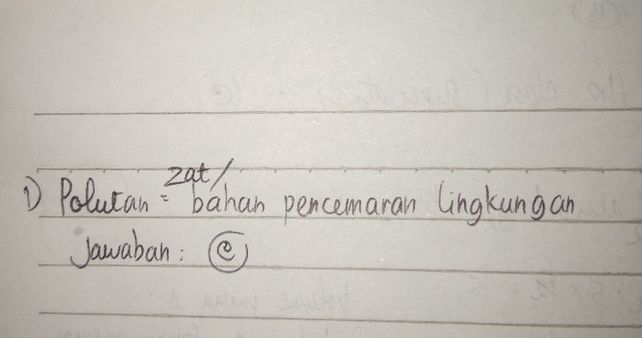 1) Polutan = zat/bahan pencemaran lingkungan
Jawaban : (e)